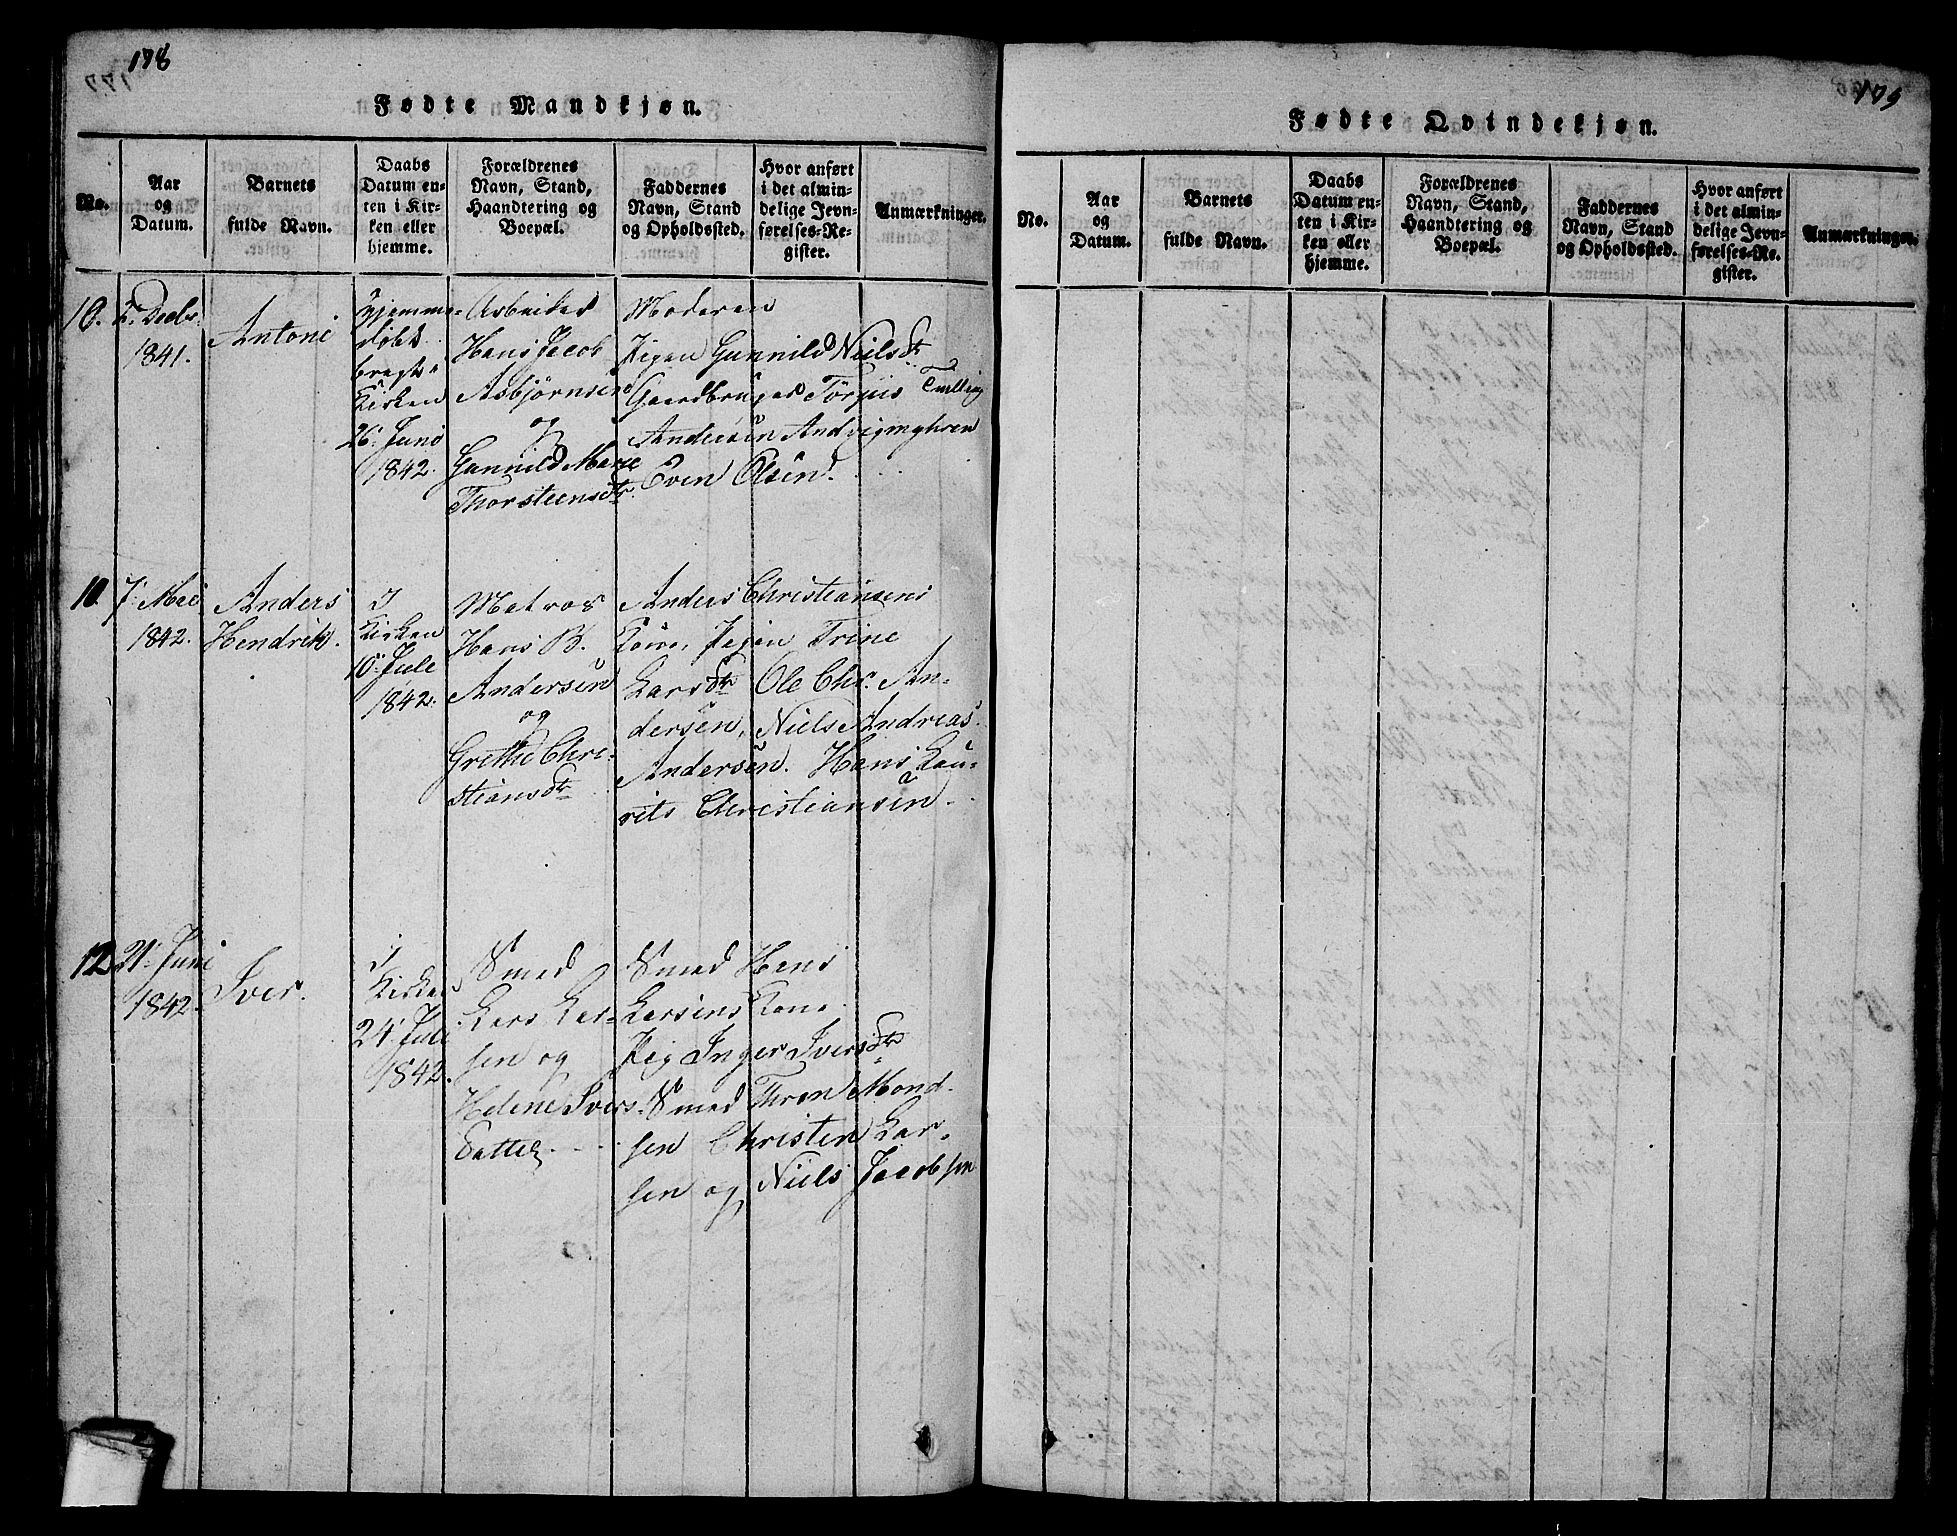 178
Fødte Mandkjøn.
No.
Aar
og
Datum.
Barnets
fulde Navn.
Daabs
Datum en-
ten i Kir-
ken eller
hjemme.
Forældrenes
Navn, Stand,
Haandtering og
Boepæl.
Faddernes
Navn, Stand
og Opholdssted.
Hvor anført
i det almin-
delige Jevn-
førelses-Re-
gister.
Anmærkninger.
10.
2. Decbr.
1841.
Antoni
Hjemme-
døbt
bragt i
Kirken
26. Juni
1842.
Arbeider
Hans Jacob
Asbjørnsen
og
Gunnild Marie
Thorsteensdtr.
Moderen
Pigen Gunnild Nielsdtr
Gaardbruger Törjus
Andersen Andvigmyhren
Even Olsen.
10.
7. Mai
1842.
Anders
Hendrik.
I
Kirken
10. Jule
1842.
Matros
Hans B.
Andersen
og
Grethe Chri-
stiansdtr
Anders Christiansens
Kone, Pigen Trine
Larsdtr Ole Chr. An-
dersen, Niels Andreas
Andersen. Hans Lau-
rits Christiansen.
12
21. Juni
1842.
Iver.
I
Kirken
24. Juli
1842.
Smed
Lars Lar-
sen og
Helene Ivers-
datter
Smed Hans
Larsens Kone
Pig Inger Iversdtr
Smed Thron Mond-
sen Christen Lar-
sen og Niels Jacobsen
179
Fødte Qvindekjøn.
No.
Aar
og
Datum.
Barnets
fulde Navn.
Daabs
Datum en-
ten i Kir-
ken eller
hjemme.
Forældrenes
Navn, Stand,
Haandtering og
Boepæl.
Faddernes
Navn, Stand
og Opholdssted.
Hvor anført
i det almin-
delige Jevn-
førelses-Re-
gister.
Anmærkninger.